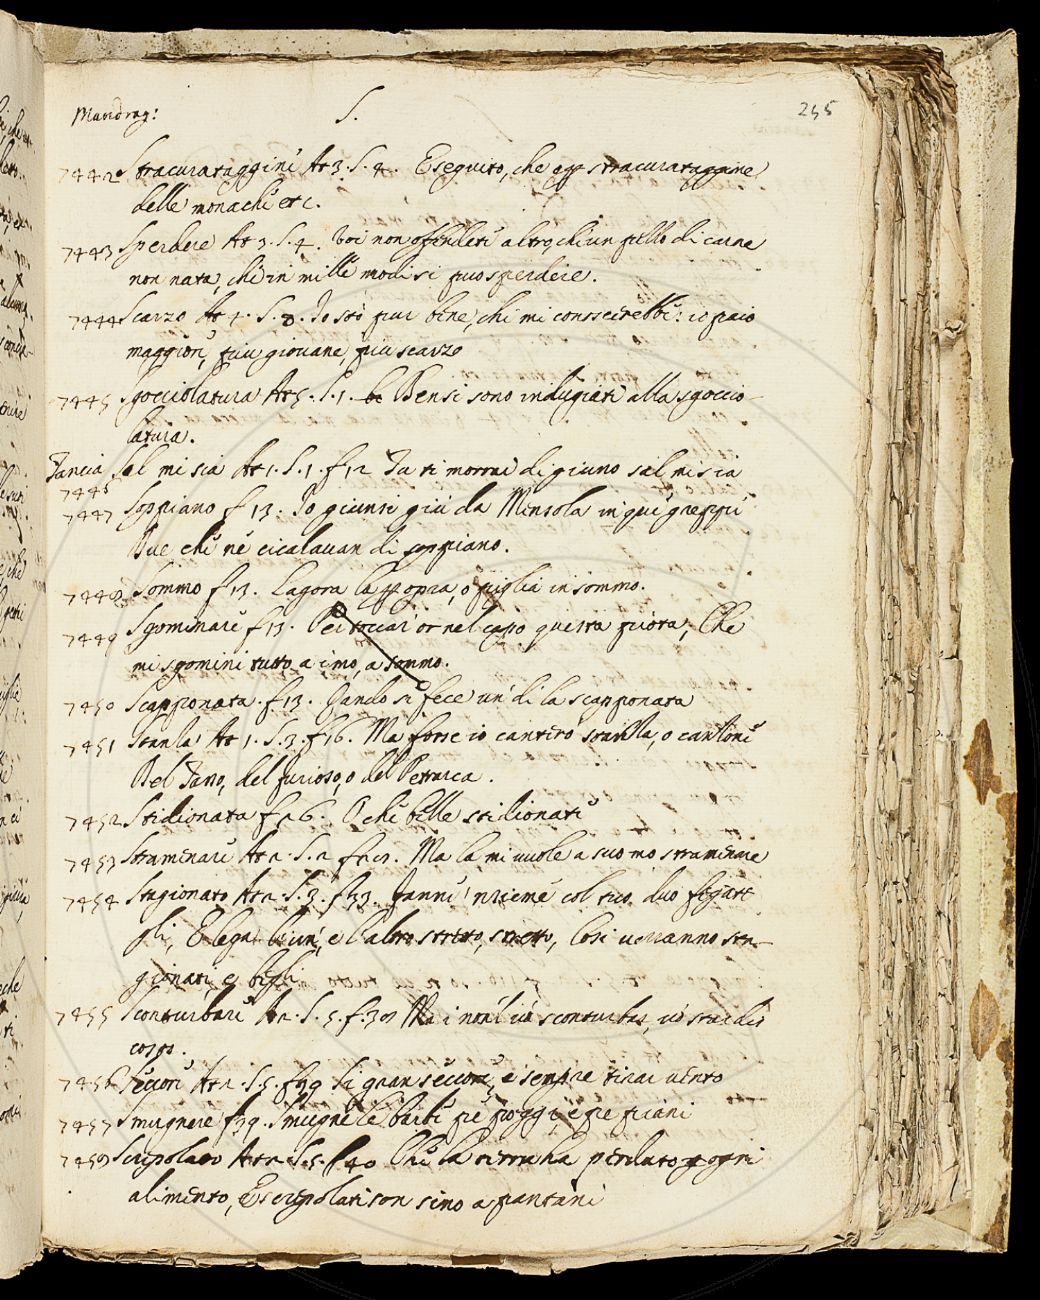 Mandrag: S. 255
7442 Stracurataggine At 3. S. 4. Eseguito, che stracurataggine
delle monache etc.
7443 Sperdere At 3. S. 4. Voi non offendete altro, che un pezzo di carne
non nata, che in mille modi si può sperdere.
7444 Scarzo At 4. S. 8. Io stò pur bene, chi mi conoscerebbe: io paio
maggiore, più giovane, più scarzo
7445 Sgocciolatura At 5. S. 1. Bensi sono indugiati alla sgoccio-
latura.
Tancia Sal mi sia At 1. S. 1. f 12 Tu ti morrai di giuno sal mi sia
7446
7447 Soppiano f 13. Io giunsi giù da Mensola in quei greppi
Due che ne cicalavan di soppiano.
7448 Sommo f 13. Lagora la sopra, o piglia in sommo.
7449 Sgominare f 13. Per toccar or nel capo questa fiora, Che
mi sgomini tutto, a imo, a sommo.
7450 Scapponata f 13. Quando si fece un dì la scapponata
7451 Stanla At 1. S. 3. f 16. Ma forse io cantero o cantione
Bel Tano, del furioso, o del Petrarca.
7452 Stidionata f 26. O che belle stidionate
7453 Stramenare At 2. S. 2 Ma la mi vuole a suo mo stramenare
7454 Stagionato At 2. S. 3. f 33. Fanne insieme col tuo duo fegate
gli, E lega l'un, e l'altro stretto, stretto, Così verranno sta-
gionati, e begli
7455 Sconturbare At 2. S. 5. f. 39 Ma i non l'uo sconturbar, uo star di
corpo.
7456 Seccore At 2. S. 5. f 39 Si gran seccore, e sempre tirar vento
7457 Smugnere f 39. Smugne le barbe pe poggi, e pe piani
7458 Scripolato At 2. S. 5. f 40 Che la terra ha perduto ogni
alimento, E scripolati son sino a pantani